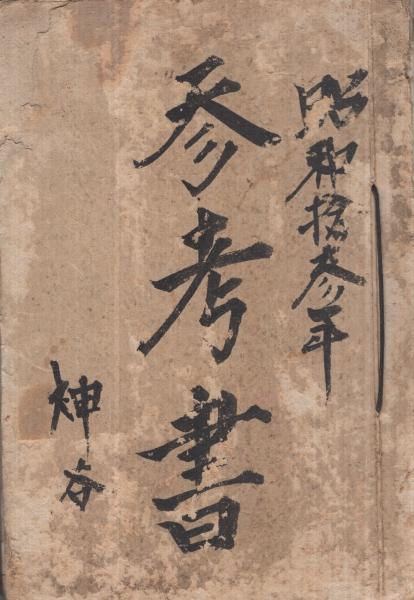 昭和拾参年
参考書
神谷